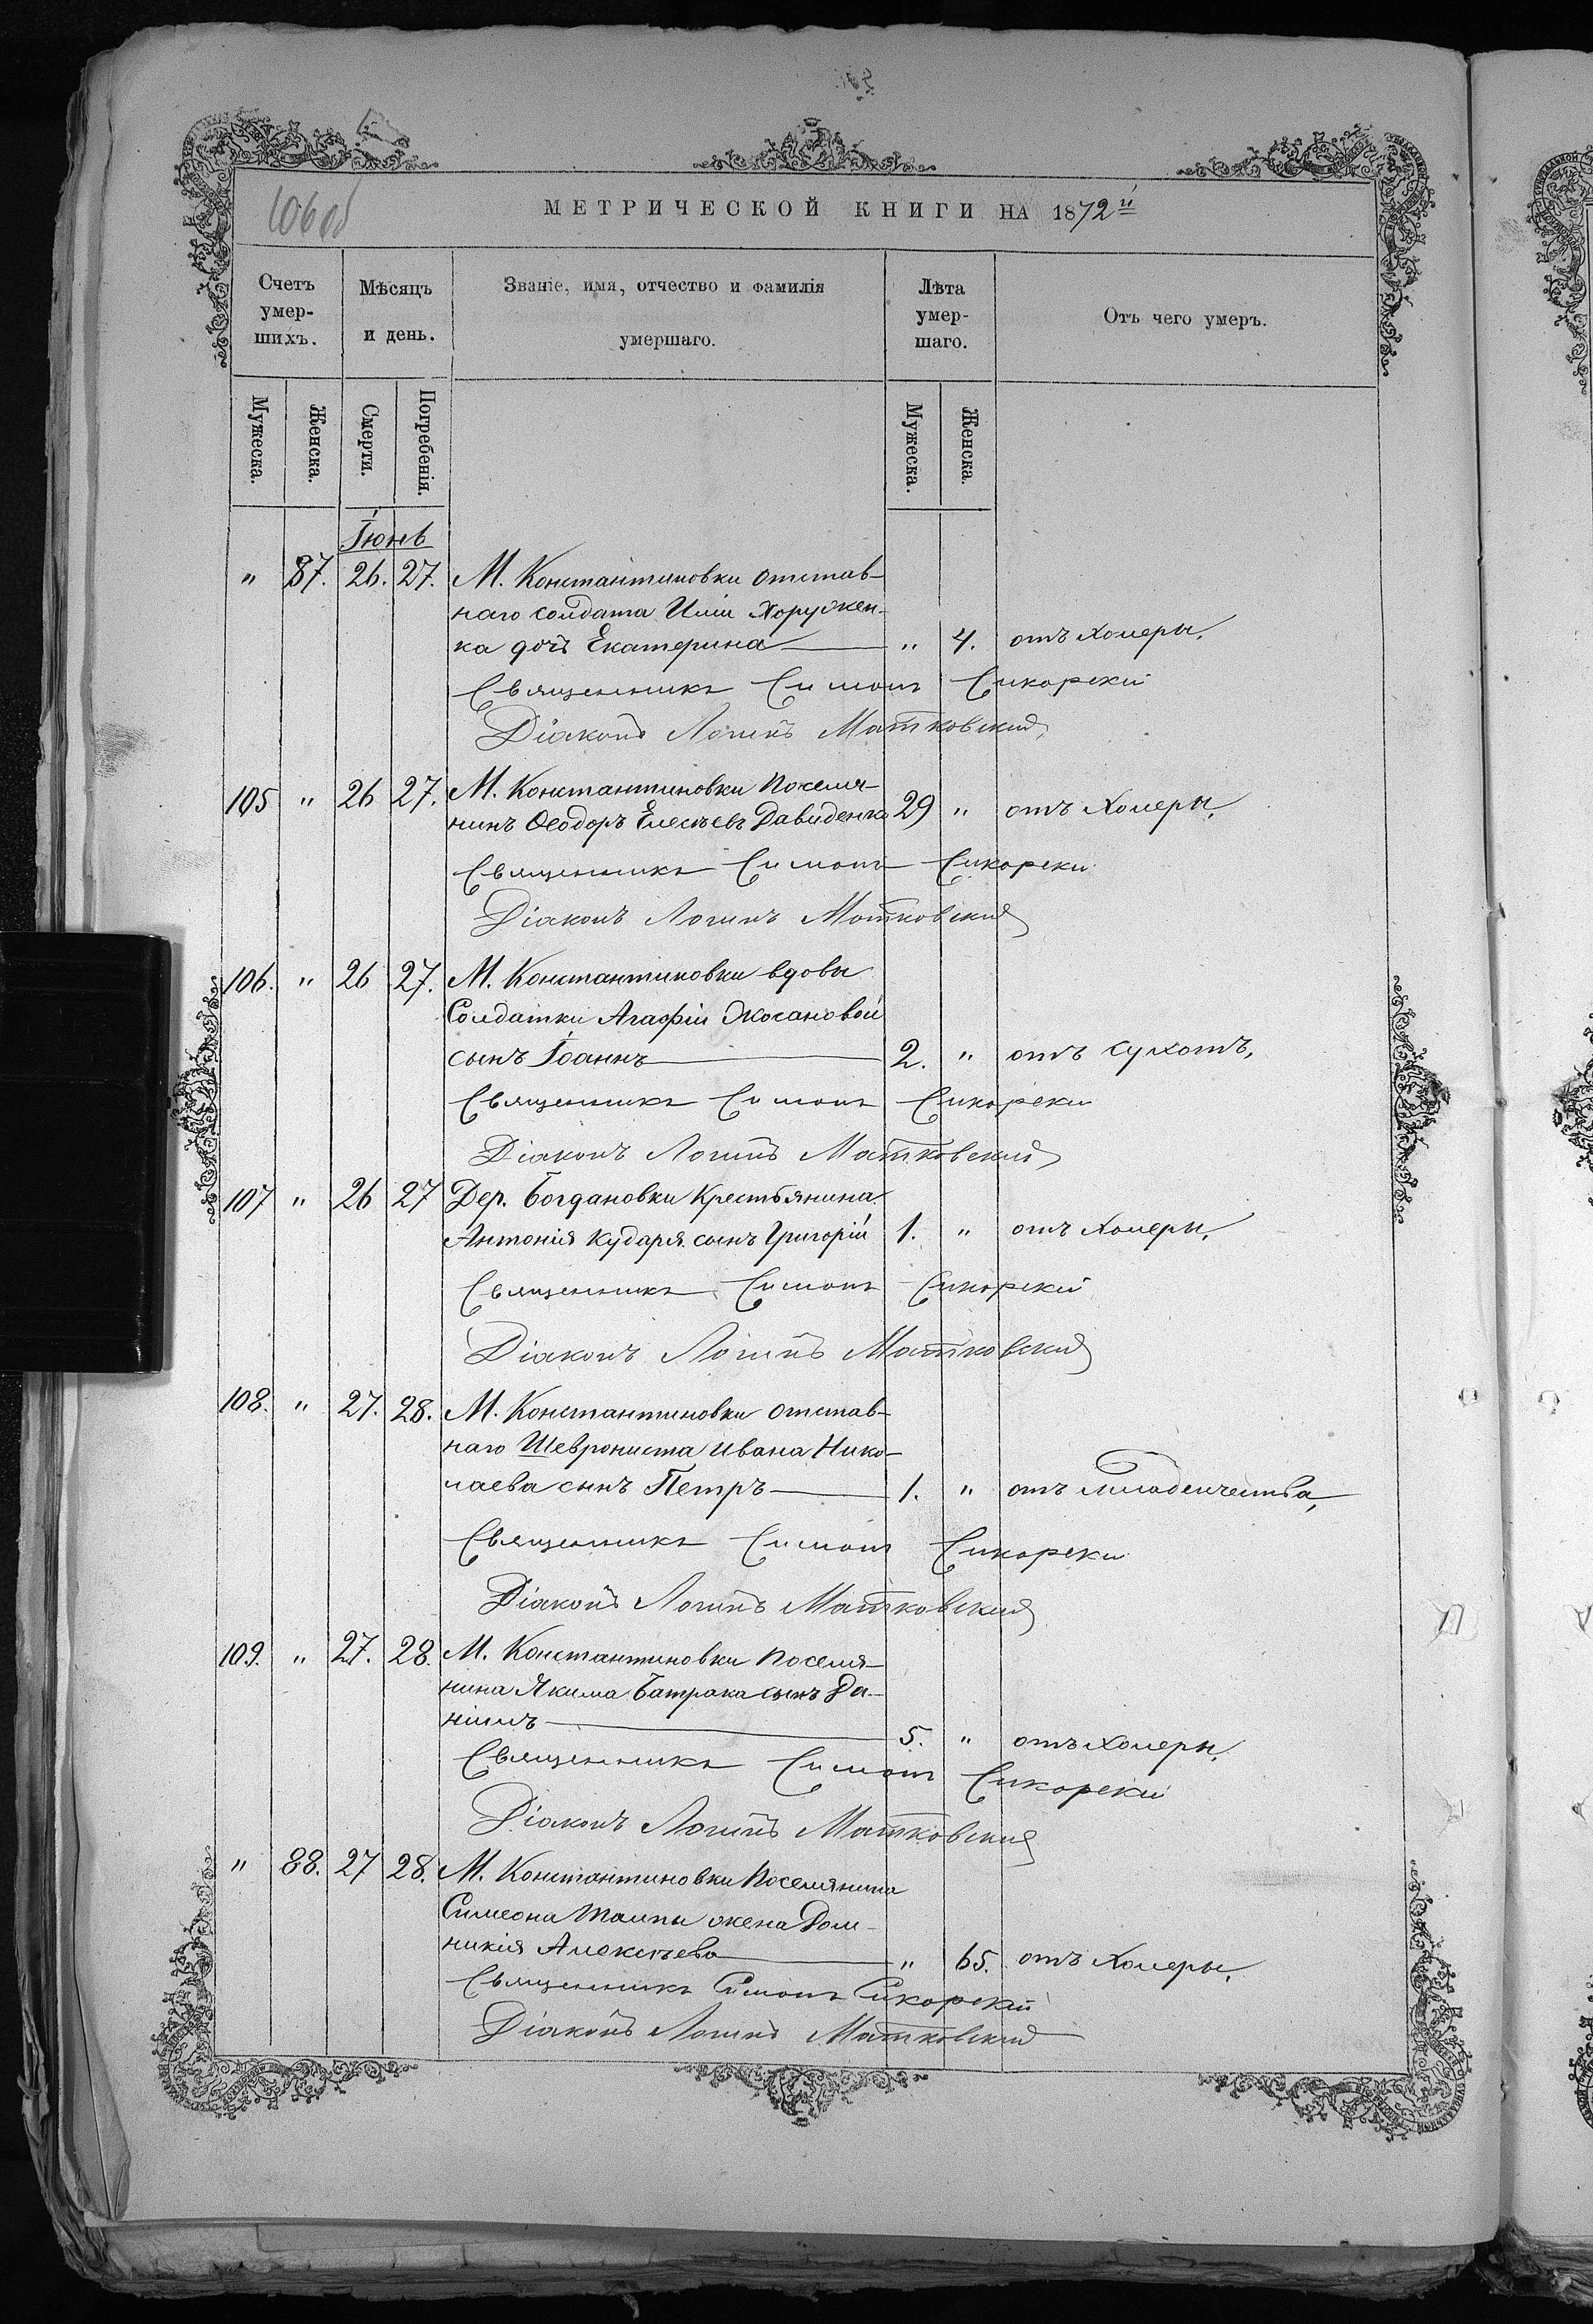 106 об
МЕТРИЧЕСКОЙ КНИГИ НА 1872й
Счетъ умер- шихъ. Мѣсяцъ и день. Званіе, имя, отчество и фамилія умершаго. Лѣта умер- шаго. Отъ чего умеръ.
Мужеска. Женска. Смерти. Погребенія. Мужеска. Женска.
Іюнь
" 87. 26. 27. М. Константиновки отстав-
наго солдата Иліи Хоружен-
ка дочь Екатерина " 4. отъ холеры.
Священникъ Симонъ Сикорскій
Діаконъ Логинъ Матковскій
105 " 26 27. М. Константиновки поселя-
нинъ Ѳеодоръ Елесѣевъ Давиденко 29 " отъ холеры.
Священникъ Симонъ Сикорскій
Діаконъ Логинъ Матковскій
106. " 26 27. М. Константиновки вдовы
Солдатки Агафіи Жосановой
сынъ Іоаннъ 2. " отъ сухотъ,
Священникъ Симонъ Сикорскій
Діаконъ Логинъ Матковскій
107 " 26 27 Дер. Богдановки Крестьянина
Антонія Кударя сынъ Григорій 1. " отъ холеры.
Священникъ Симонъ Сикорскій
Діаконъ Логинъ Матковскій
108. " 27. 28. М. Константиновки отстав-
наго Шеврониста Ивана Нико-
лаева сынъ Петръ 1. " отъ младенчества,
Священникъ Симонъ Сикорскій
Діаконъ Логинъ Матковскій
109. " 27. 28. М. Константиновки поселя-
нина Якима Батрака сынъ Да-
ніилъ 5. " отъ холеры.
Священникъ Симонъ Сикорскій
Діаконъ Логинъ Матковскій
" 88. 27 28. М. Константиновки Поселянина
Симеона Шалпы жена Дом-
никія Алексѣева " 65. отъ холеры.
Священникъ Симонъ Сикорскій
Діаконъ Логинъ Матковскій